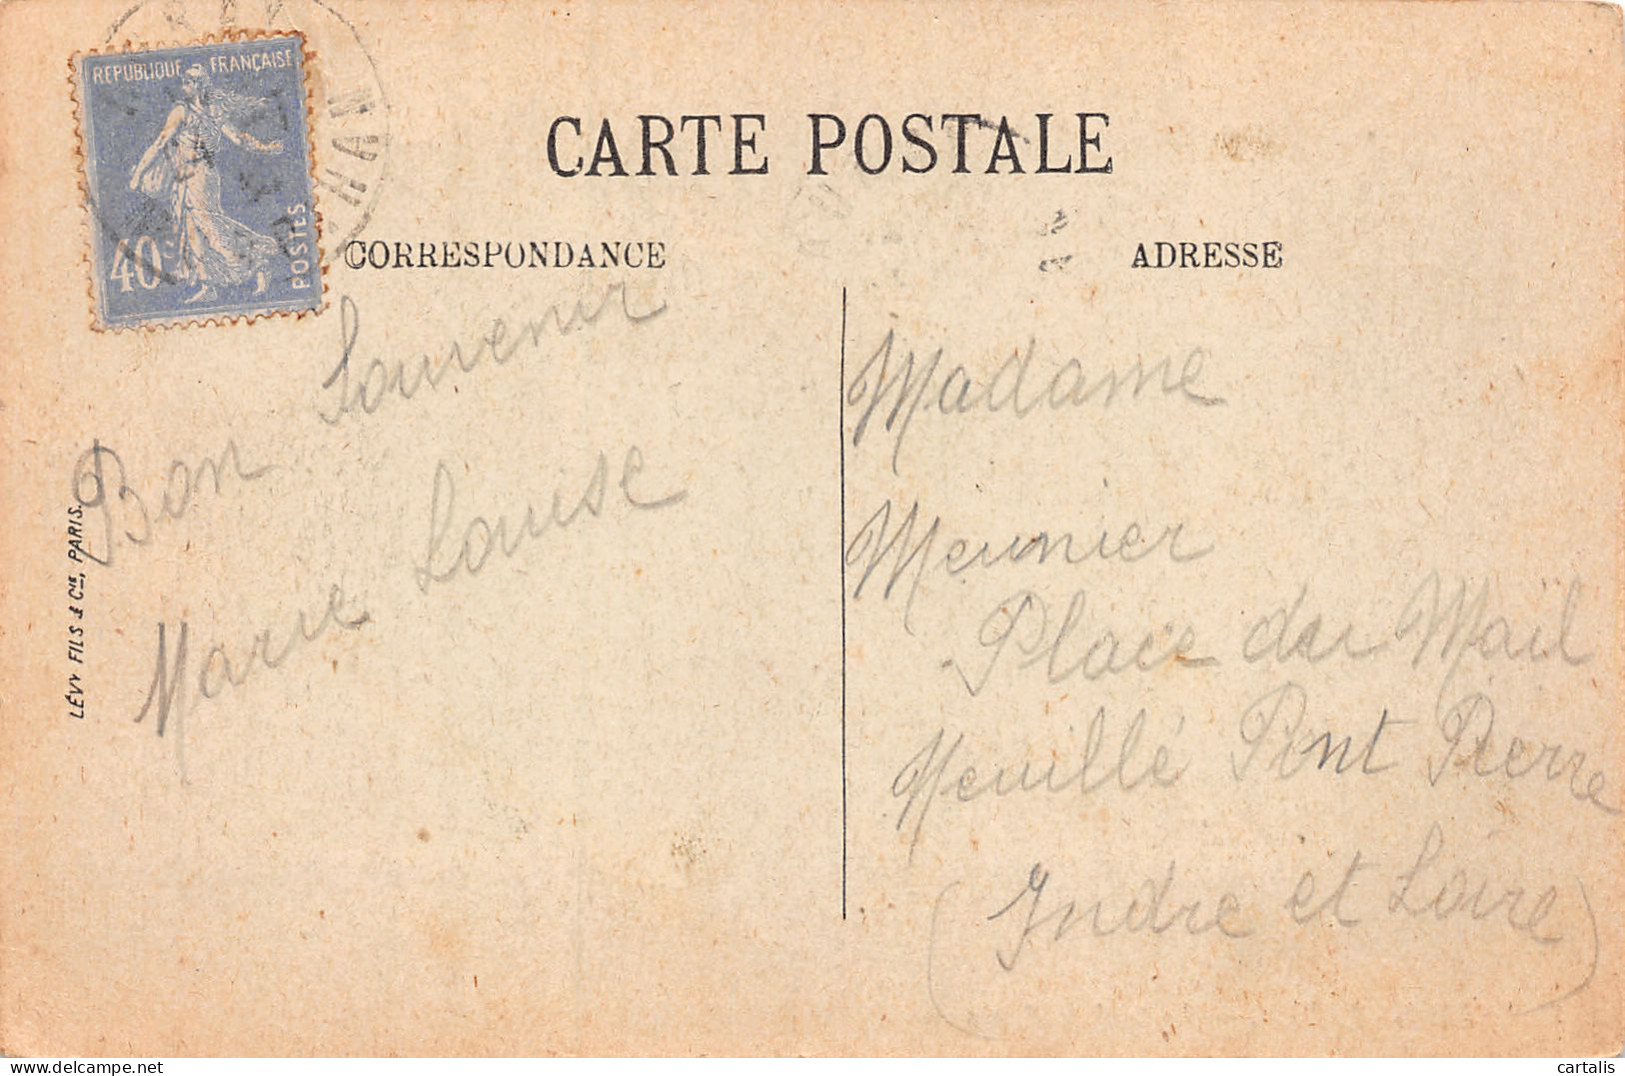 REPUBLIQUE FRANÇAISE
40c
POSTES
CARTE POSTALE
CORRESPONDANCE
ADRESSE
Bon Souvenir
Marie Louise
LÉVY FILS & Cie, PARIS.
Madame
Meunier
Place du Mail
Neuillé Pont Pierre
(Indre et Loire)
cartalis